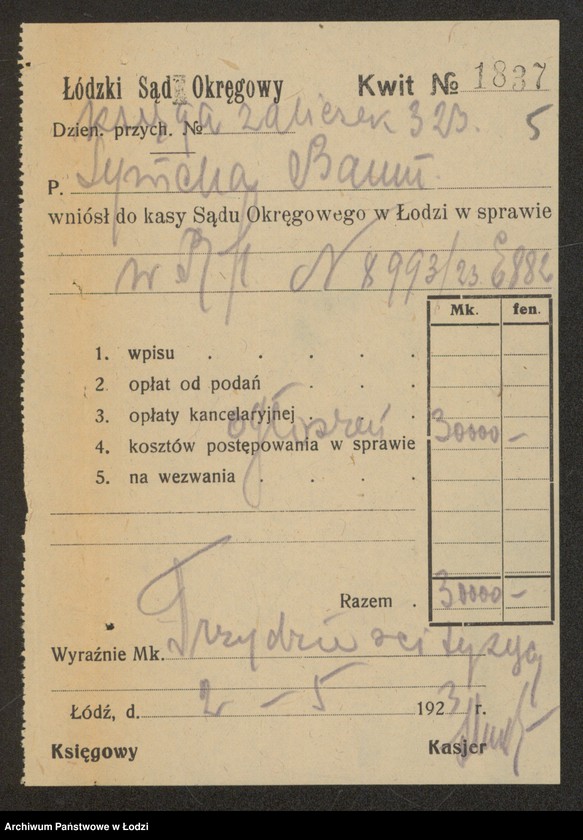 Łódzki Sąd Okręgowy Kwit № 1837
Dzien. przych. № księga zaliczek 323. 5
P. Baum
wniósł do kasy Sądu Okręgowego w Łodzi w sprawie
w N 8993/23
Mk. fen.
1. wpisu . . . . .
2. opłat od podań . . .
3. opłaty kancelaryjnej . . .
ogłoszeń 30000 –
4. kosztów postępowania w sprawie
5. na wezwania . . . .
Razem . 30000 –
Wyraźnie Mk. Trzydzieści tysięcy
Łódź, d. 2 – 5 1923 r.
Księgowy Kasjer
Archiwum Państwowe w Łodzi